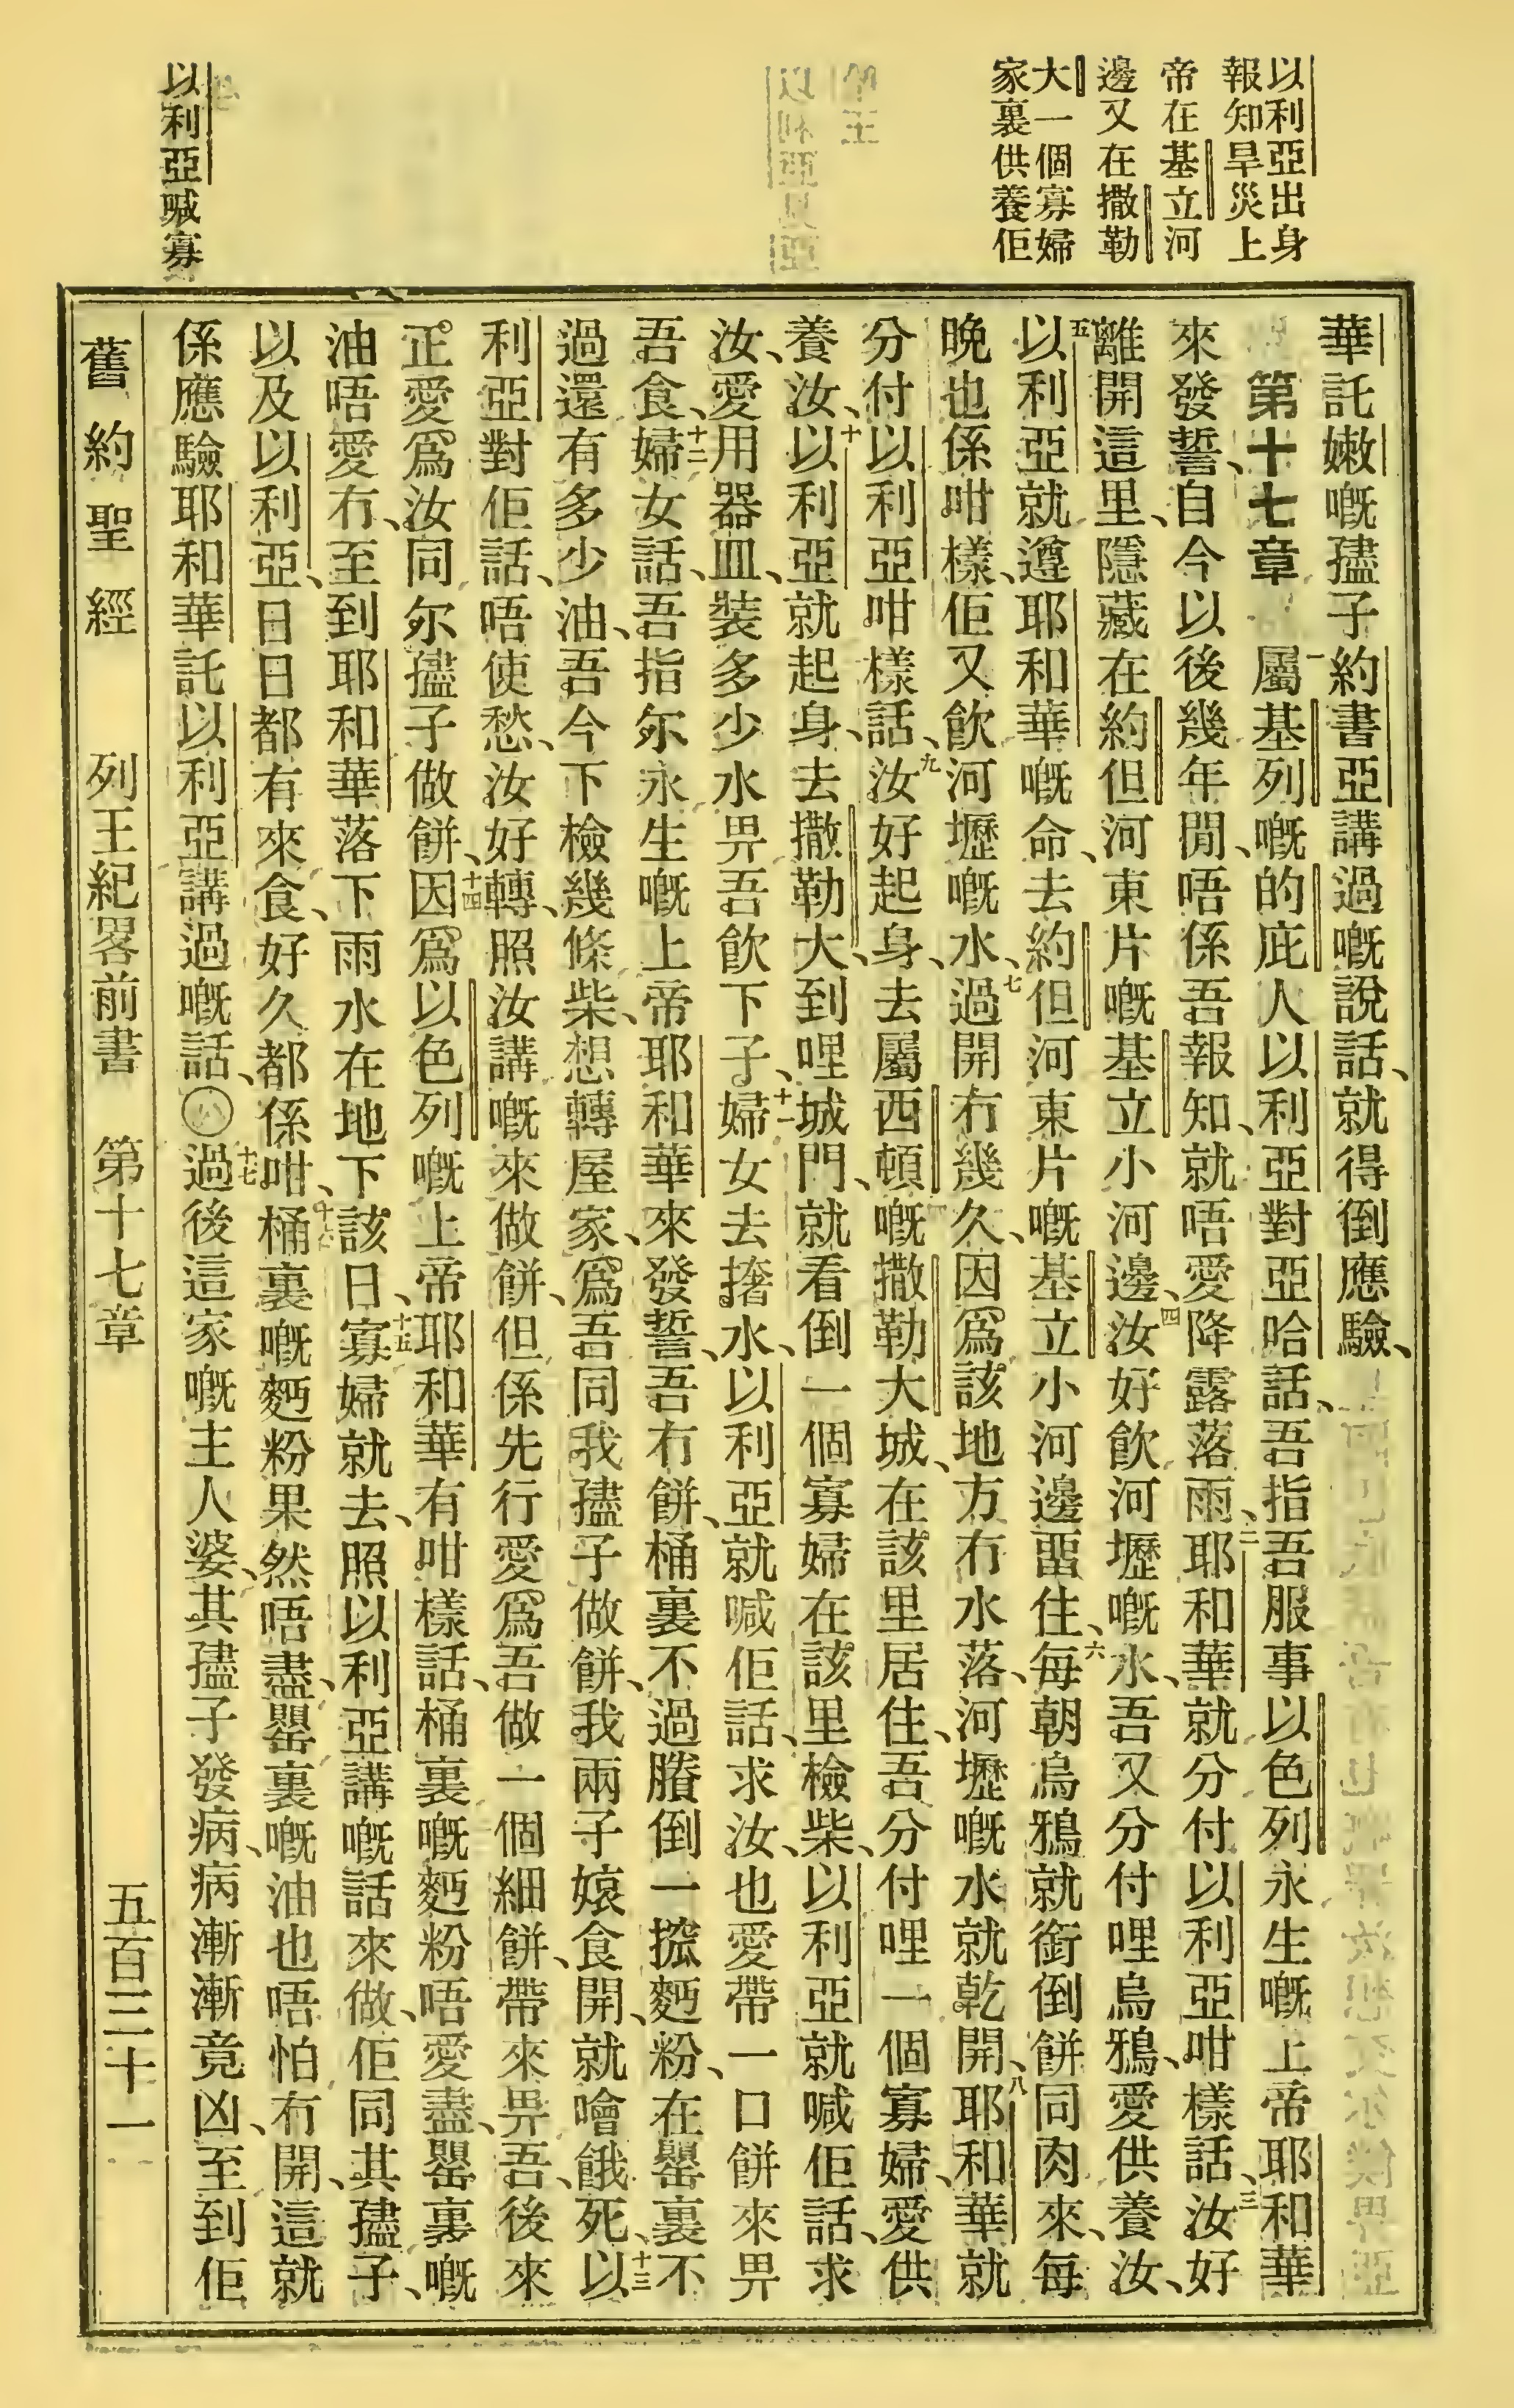 以利亞出身
報知旱災上
帝在基立河
邊又在撒勒
大一個寡婦
家裏供養佢
以利亞喊寡
華託嫩嘅孻子約書亞講過嘅說話、就得倒應驗、
第十七章 一屬基列嘅的庇人以利亞對亞哈話、吾指吾服事以色列永生嘅上帝耶和華
來發誓、自今以後幾年閒、唔係吾報知、就唔愛降露落雨、二耶和華就分付以利亞咁樣話、三汝好
離開這里、隱藏在約但河東片嘅基立小河邊、四汝好飲河壢嘅水、吾又分付哩烏鴉、愛供養汝、
五以利亞就遵耶和華嘅命、去約但河東片嘅基立小河邊畱住、六每朝烏鴉就銜倒餅同肉來、每
晚也係咁樣、佢又飲河壢嘅水、七過開冇幾久、因爲該地方冇水落、河壢嘅水就乾開、八耶和華就
分付以利亞咁樣話、九汝好起身、去屬西頓嘅撒勒大城、在該里居住、吾分付哩一個寡婦、愛供
養汝、十以利亞就起身、去撒勒大、到哩城門、就看倒一個寡婦在該里檢柴、以利亞就喊佢話、求
汝、愛用器皿、裝多少水畀吾飲下子、十一婦女去撦水、以利亞就喊佢話、求汝也愛帶一口餅來畀
吾食、十二婦女話、吾指尔永生嘅上帝耶和華來發誓、吾冇餅、桶裏不過賸倒一㧬麪粉、在罌裏不
過還有多少油、吾今下檢幾條柴、想轉屋家、爲吾同我孻子做餅、我兩子㜷食開、就噲餓死、十三以
利亞對佢話、唔使愁、汝好轉、照汝講嘅來做餅、但係先行愛爲吾做一個細餅、帶來畀吾、後來
正愛爲汝同尔孻子做餅、十四因爲以色列嘅上帝耶和華有咁樣話、桶裏嘅麪粉唔愛盡、罌裏嘅
油唔愛冇、至到耶和華落下雨水在地下該日、十五寡婦就去、照以利亞講嘅話來做、佢同其孻子、
以及以利亞、日日都有來食、好久都係咁、十六桶裏嘅麪粉果然唔盡、罌裏嘅油也唔怕冇開、這就
係應驗耶和華託以利亞講過嘅話、〇十七過後這家嘅主人婆、其孻子發病、病漸漸竟凶、至到佢
舊約聖經 列王紀畧前書 第十七章 五百三十一